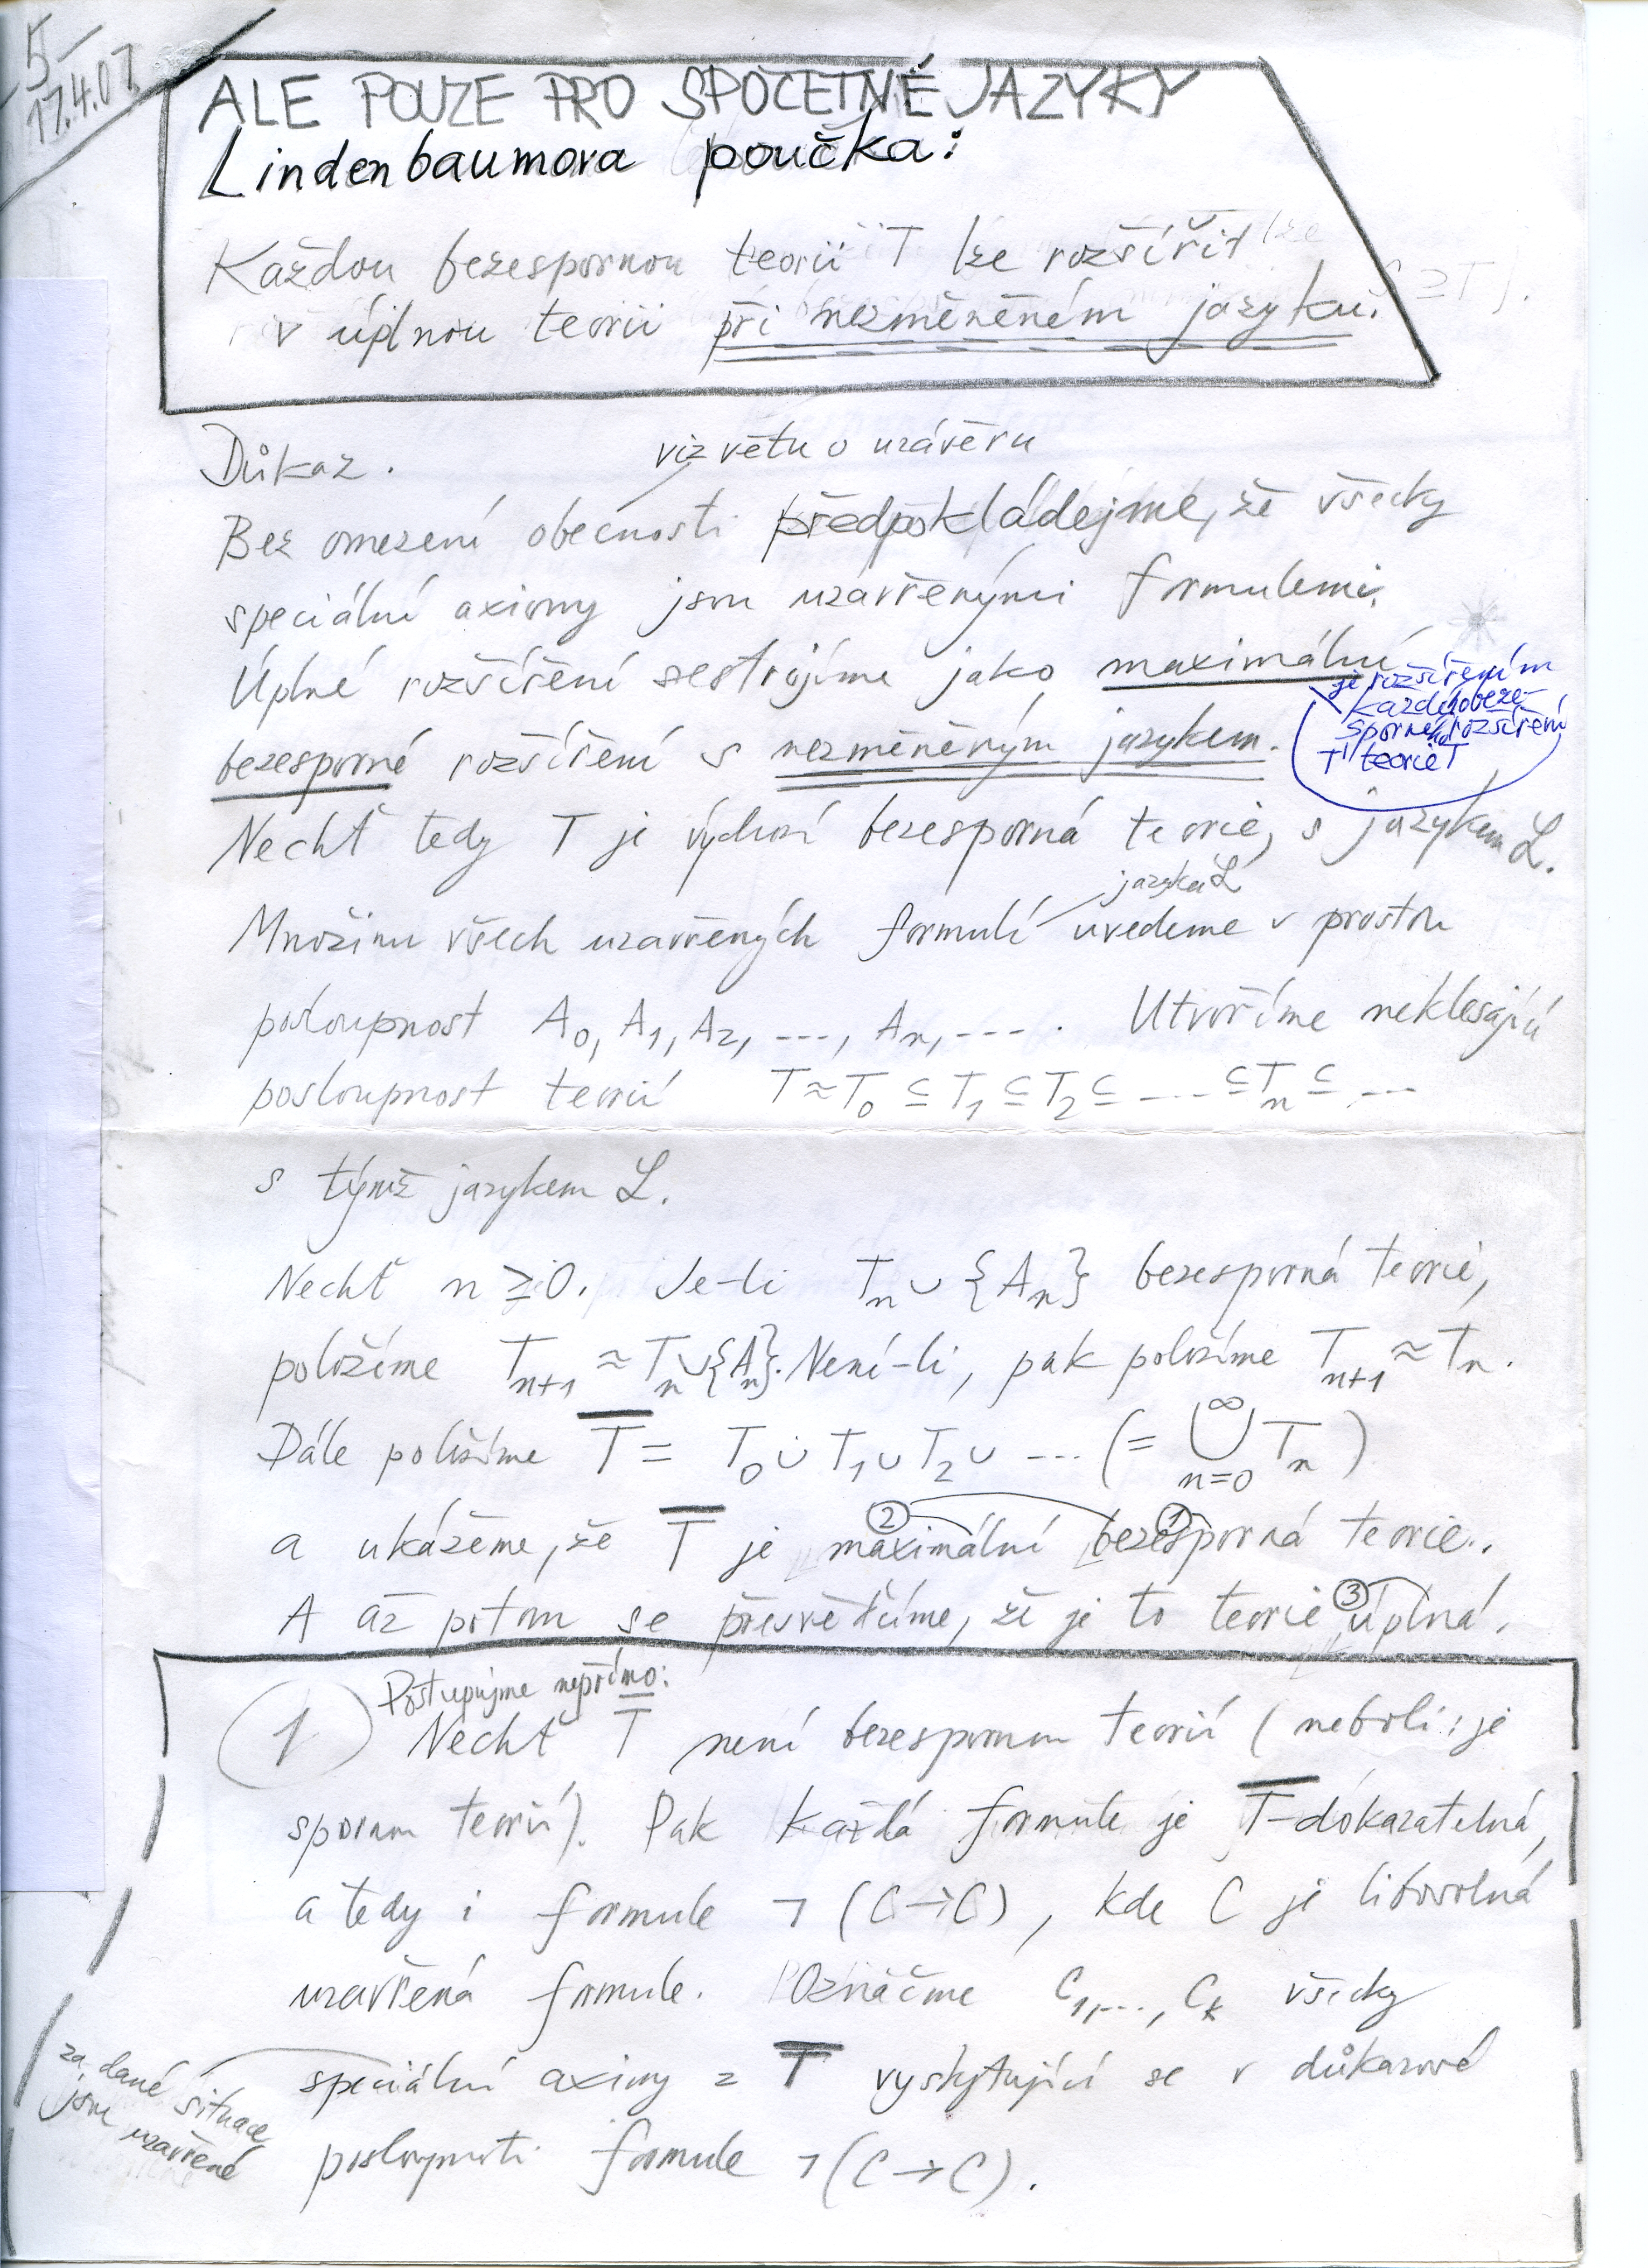 5
17.4.07
ALE POUZE PRO SPOČETNÉ JAZYKY
Lindenbaumova poučka:
Každou bezespornou teorii T lze rozšířit
v úplnou teorii při nezměněném jazyku.
Důkaz.
viz větu o uzávěru
Bez omezení obecnosti předpokládejme, že všecky
speciální axiomy jsou uzavřenými formulemi.
Úplné rozšíření sestrojíme jako maximální
je rozšířením
každého beze-
sporného rozšíření
T' teorie T
bezesporné rozšíření s nezměněným jazykem.
Nechť tedy T je výchozí bezesporná teorie, s jazykem L.
jazyka L
Množinu všech uzavřených formulí uvedeme v prostou
posloupnost A₀, A₁, A₂, ..., Aₙ, ... . Utvoříme neklesající
posloupnost teorií T ≈ T₀ ⊆ T₁ ⊆ T₂ ⊆ ... ⊆ Tₙ ⊆ ...
s týmž jazykem L.
Nechť n ≥ 0. Je-li Tₙ ∪ {Aₙ} bezesporná teorie,
položíme Tₙ₊₁ ≈ Tₙ ∪ {Aₙ}. Není-li, pak položíme Tₙ₊₁ ≈ Tₙ.
Dále položíme T̅ = T₀ ∪ T₁ ∪ T₂ ∪ ... (= ⋃ₙ₌₀^∞ Tₙ)
② ①
a ukážeme, že T̅ je maximální bezesporná teorie.
③
A až potom se přesvědčíme, že je to teorie úplná.
Postupujme nepřímo:
1 Nechť T̅ není bezespornou teorií (neboli: je
spornou teorií). Pak každá formule je T̅-dokazatelná,
a tedy i formule ¬(C→C), kde C je libovolná
uzavřená formule. Označme C₁,..., Cₖ všecky
speciální axiomy z T̅ vyskytující se v důkazové
za dané situace
jsou uzavřené
posloupnosti formule ¬(C→C).